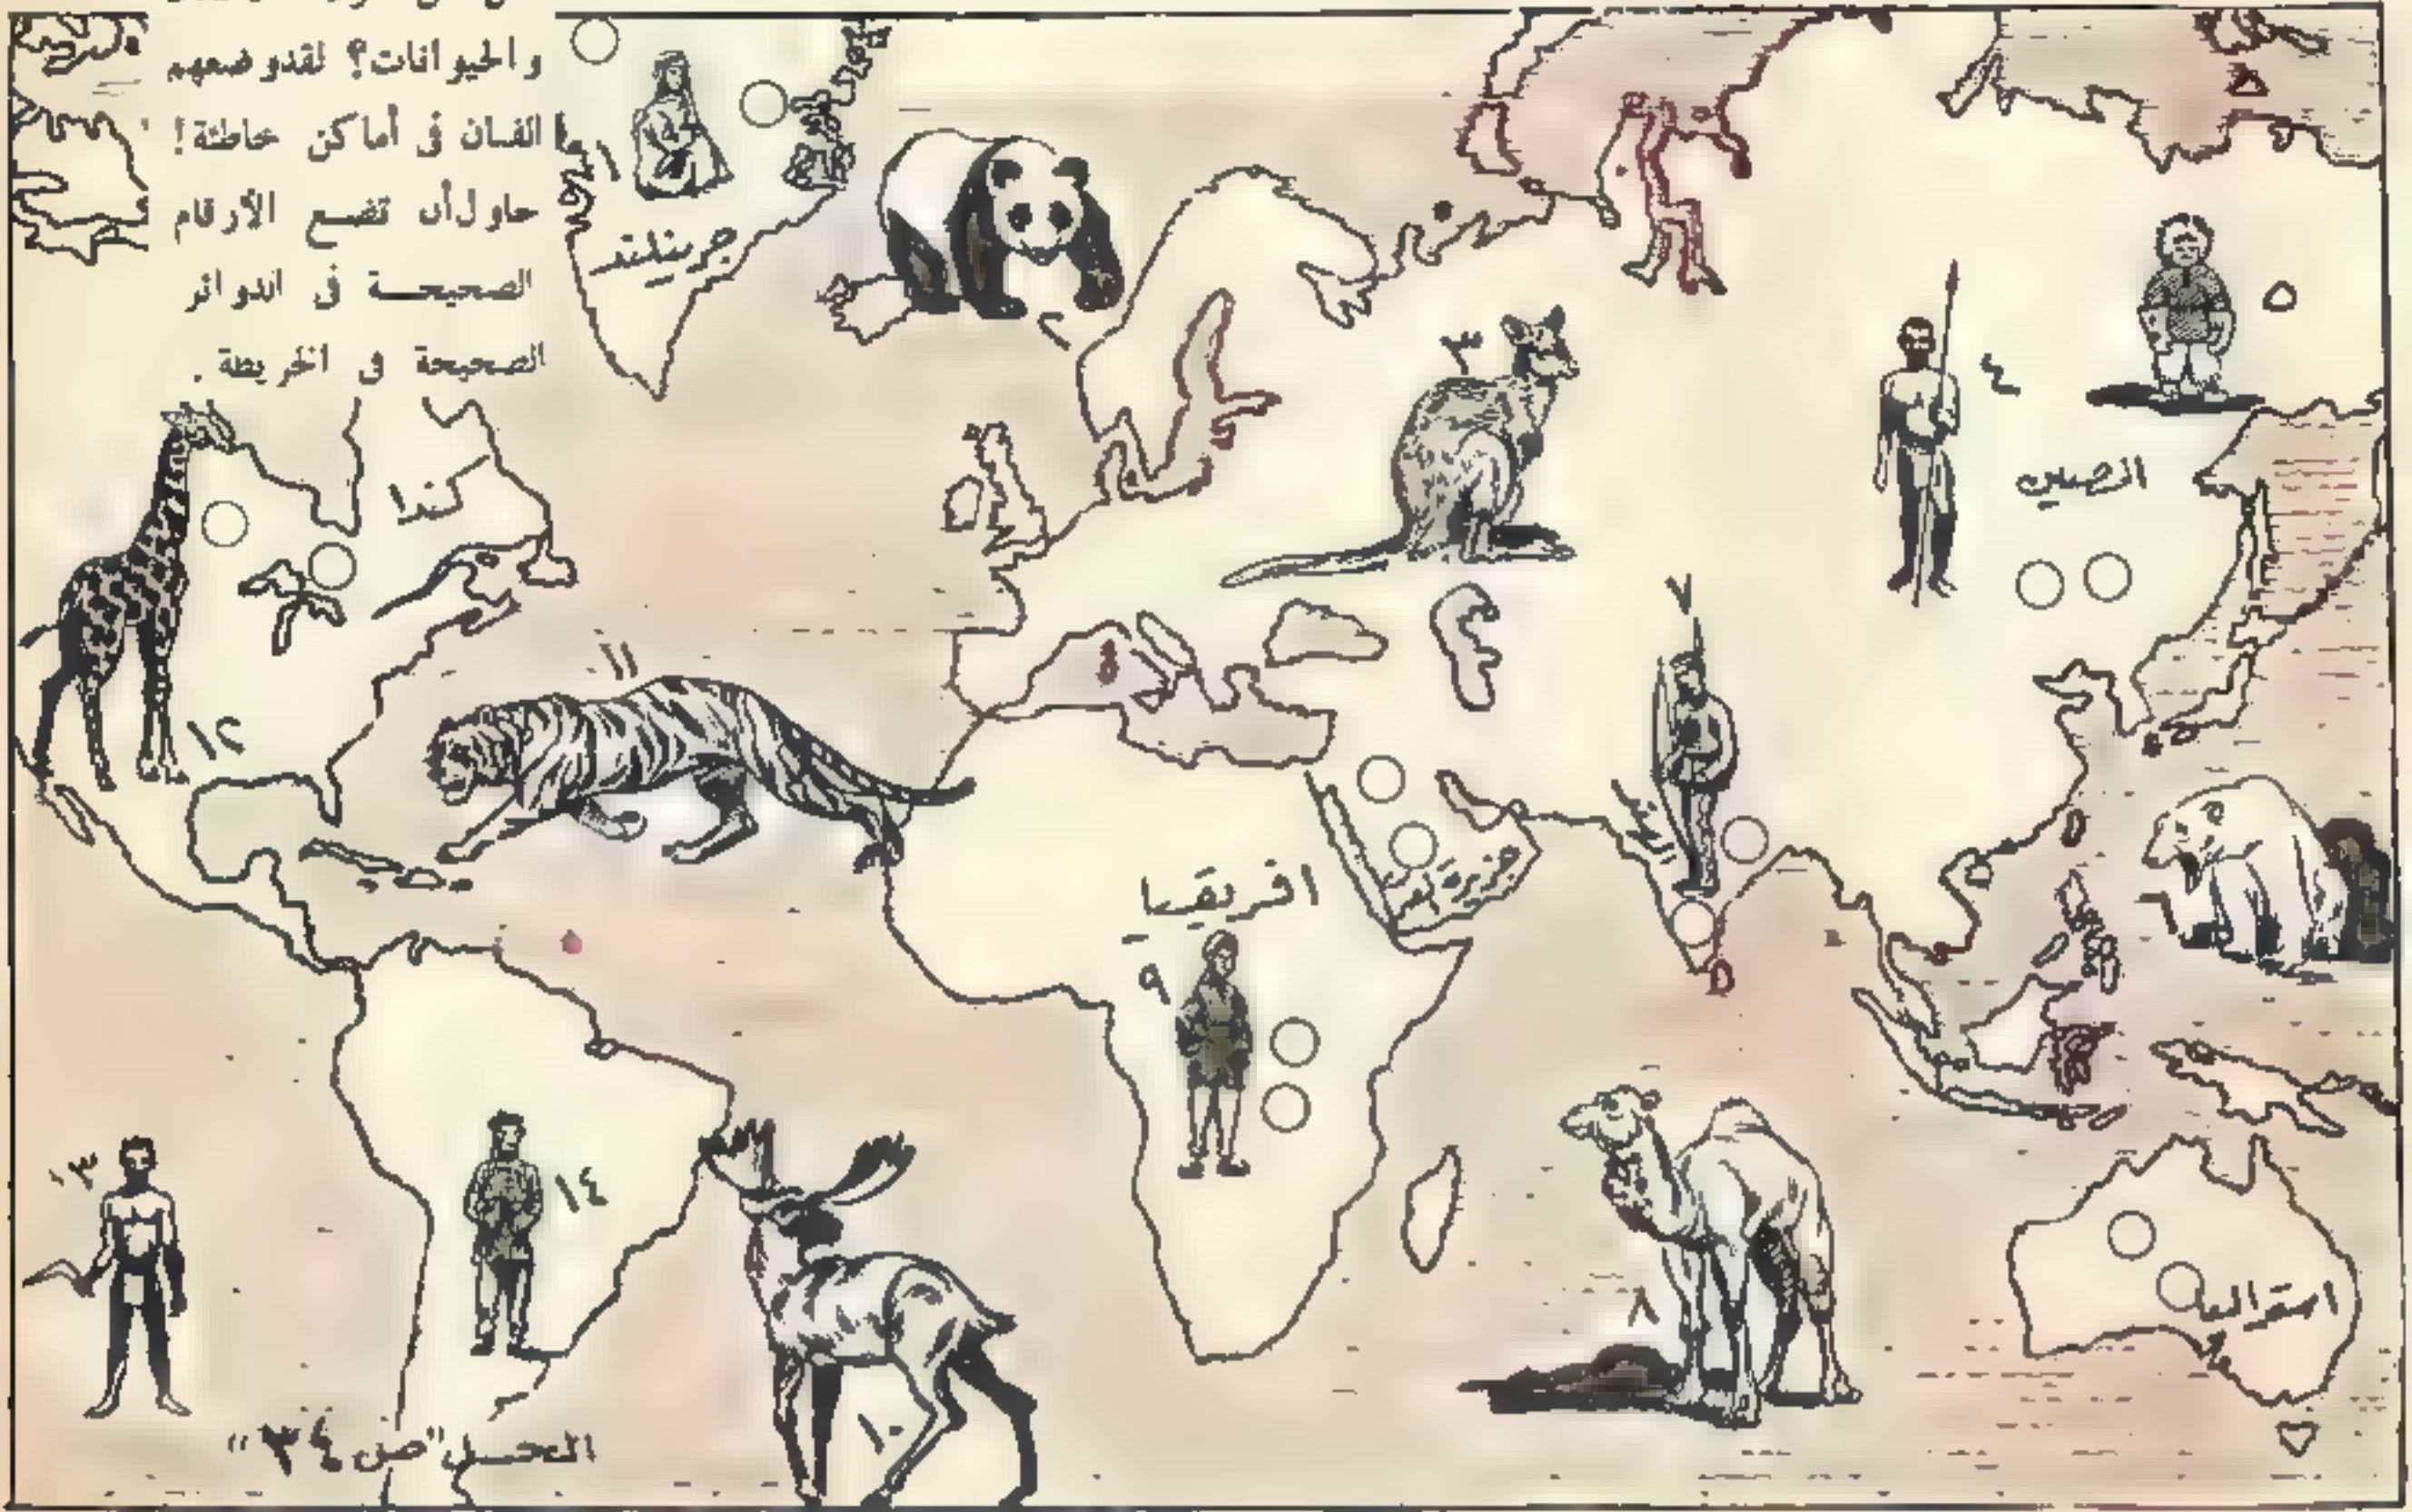 والحيوانات؟ لقد وضعهم
الفنان فى أماكن خاطئة!
حاول أن تضع الأرقام
الصحيحـــة فى الدوائر
الصحيحة فى الخريطة .
١
جرينلند
٢
٣
٤
٥
الصين
كندا
٧
١١
١٢
الهند
جزيرة العرب
افريقيا
٩
١٣
١٤
٨
استراليا
١٠
الحـــل "ص ٣٤"